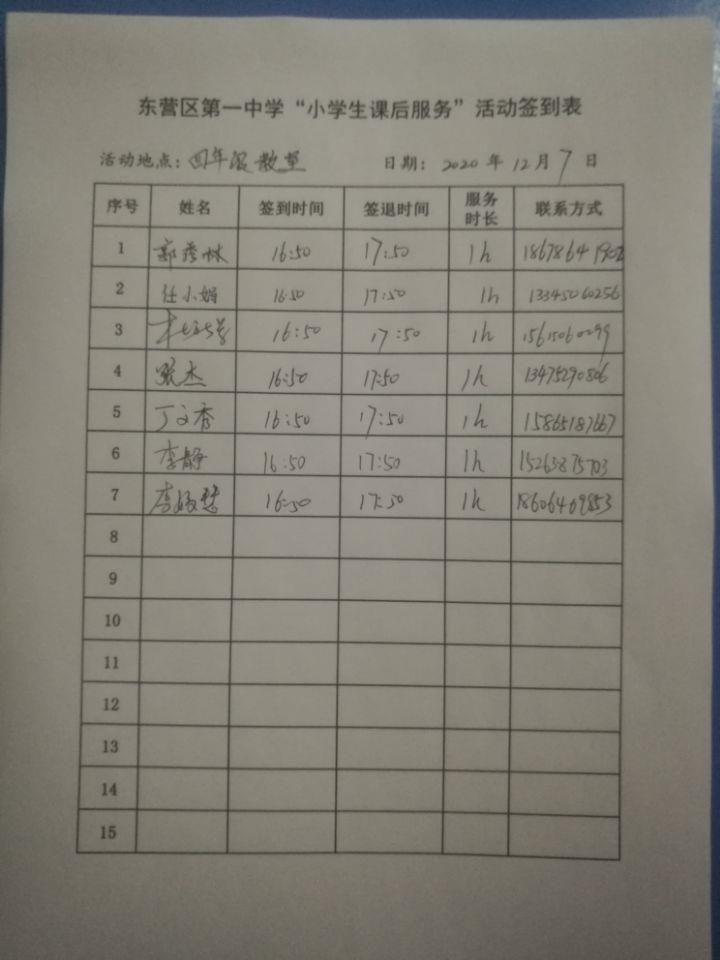 东营区第一中学“小学生课后服务”活动签到表
活动地点：四年级教室 日期：2020 年 12 月 7 日
序号 姓名 签到时间 签退时间 服务时长 联系方式
1 郭秀林 16:50 17:50 1h 18678641902
2 任小娟 16:50 17:50 1h 13345060256
3 16:50 17:50 1h 15615060299
4 张杰 16:50 17:50 1h 13475290806
5 丁文秀 16:50 17:50 1h 15865187667
6 李静 16:50 17:50 1h 15263875703
7 16:50 17:50 1h 18606469853
8
9
10
11
12
13
14
15